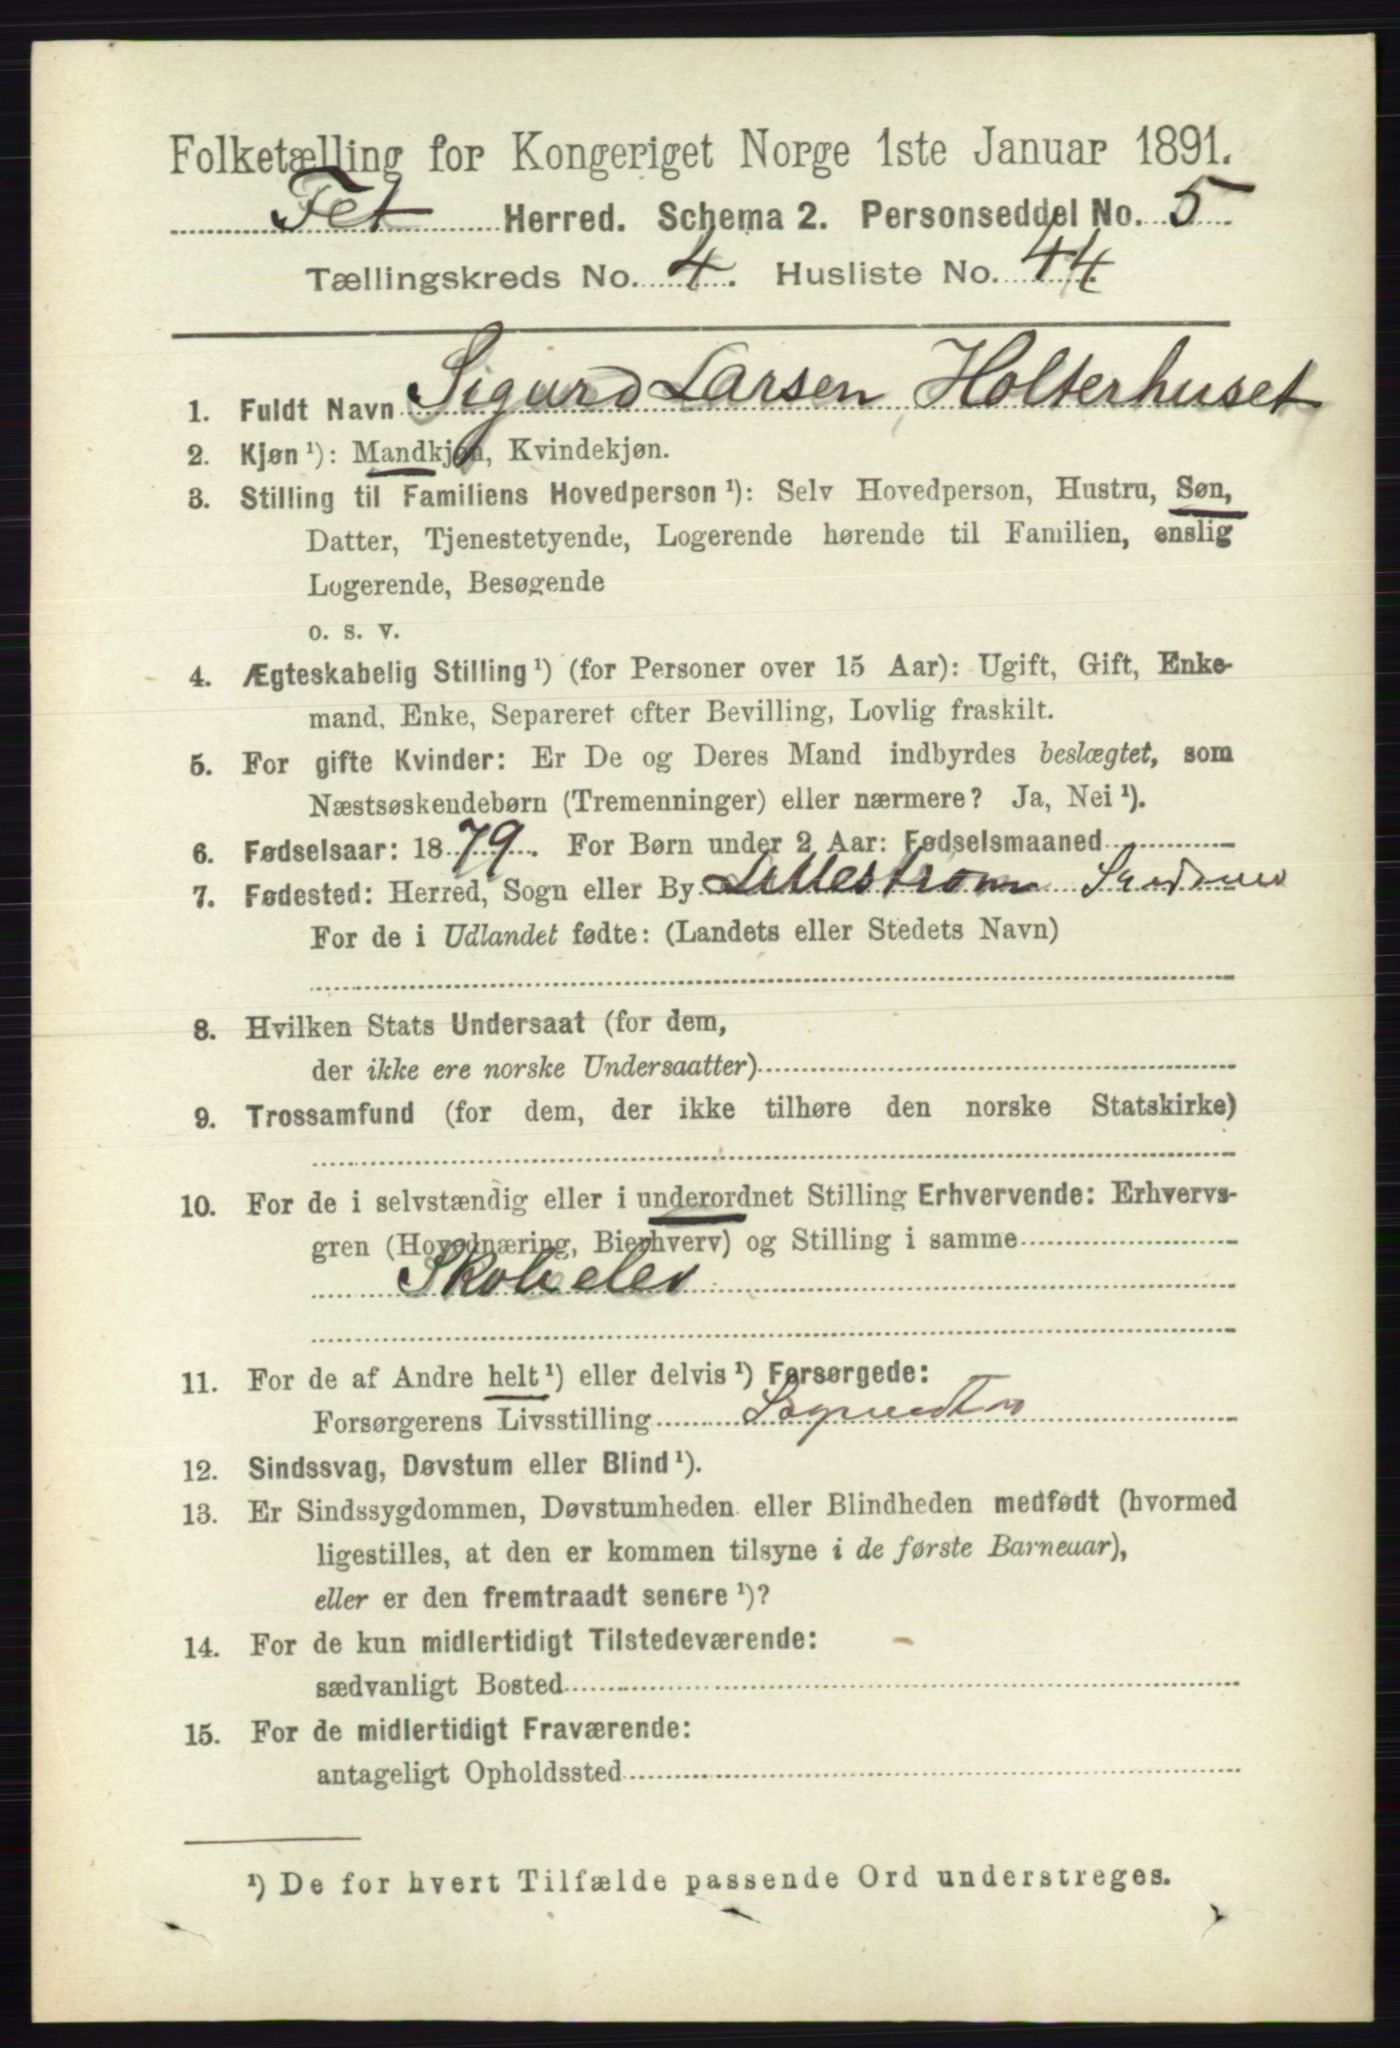 Folketælling for Kongeriget Norge 1ste Januar 1891.
Fet Herred. Schema 2. Personseddel No. 5
Tællingskreds No. 4. Husliste No. 44
1. Fuldt Navn Sigurd Larsen Holterhuset
2. Kjøn ¹): Mandkjøn, Kvindekjøn.
3. Stilling til Familiens Hovedperson ¹): Selv Hovedperson, Hustru, Søn,
Datter, Tjenestetyende, Logerende hørende til Familien, enslig
Logerende, Besøgende
o. s. v.
4. Ægteskabelig Stilling ¹) (for Personer over 15 Aar): Ugift, Gift, Enke-
mand, Enke, Separeret efter Bevilling, Lovlig fraskilt.
5. For gifte Kvinder: Er De og Deres Mand indbyrdes beslægtet, som
Næstsøskendebørn (Tremenninger) eller nærmere? Ja, Nei ¹).
6. Fødselsaar: 1879. For Børn under 2 Aar: Fødselsmaaned
7. Fødested: Herred, Sogn eller By Lillestrøm
For de i Udlandet fødte: (Landets eller Stedets Navn)
8. Hvilken Stats Undersaat (for dem,
der ikke ere norske Undersaatter)
9. Trossamfund (for dem, der ikke tilhøre den norske Statskirke)
10. For de i selvstændig eller i underordnet Stilling Erhvervende: Erhvervs-
gren (Hovednæring, Bierhverv) og Stilling i samme
Skoleelev
11. For de af Andre helt ¹) eller delvis ¹) Forsørgede:
Forsørgerens Livsstilling
12. Sindssvag, Døvstum eller Blind ¹).
13. Er Sindssygdommen, Døvstumheden eller Blindheden medfødt (hvormed
ligestilles, at den er kommen tilsyne i de første Barneaar),
eller er den fremtraadt senere ¹)?
14. For de kun midlertidigt Tilstedeværende:
sædvanligt Bosted
15. For de midlertidigt Fraværende:
antageligt Opholdssted
¹) De for hvert Tilfælde passende Ord understreges.